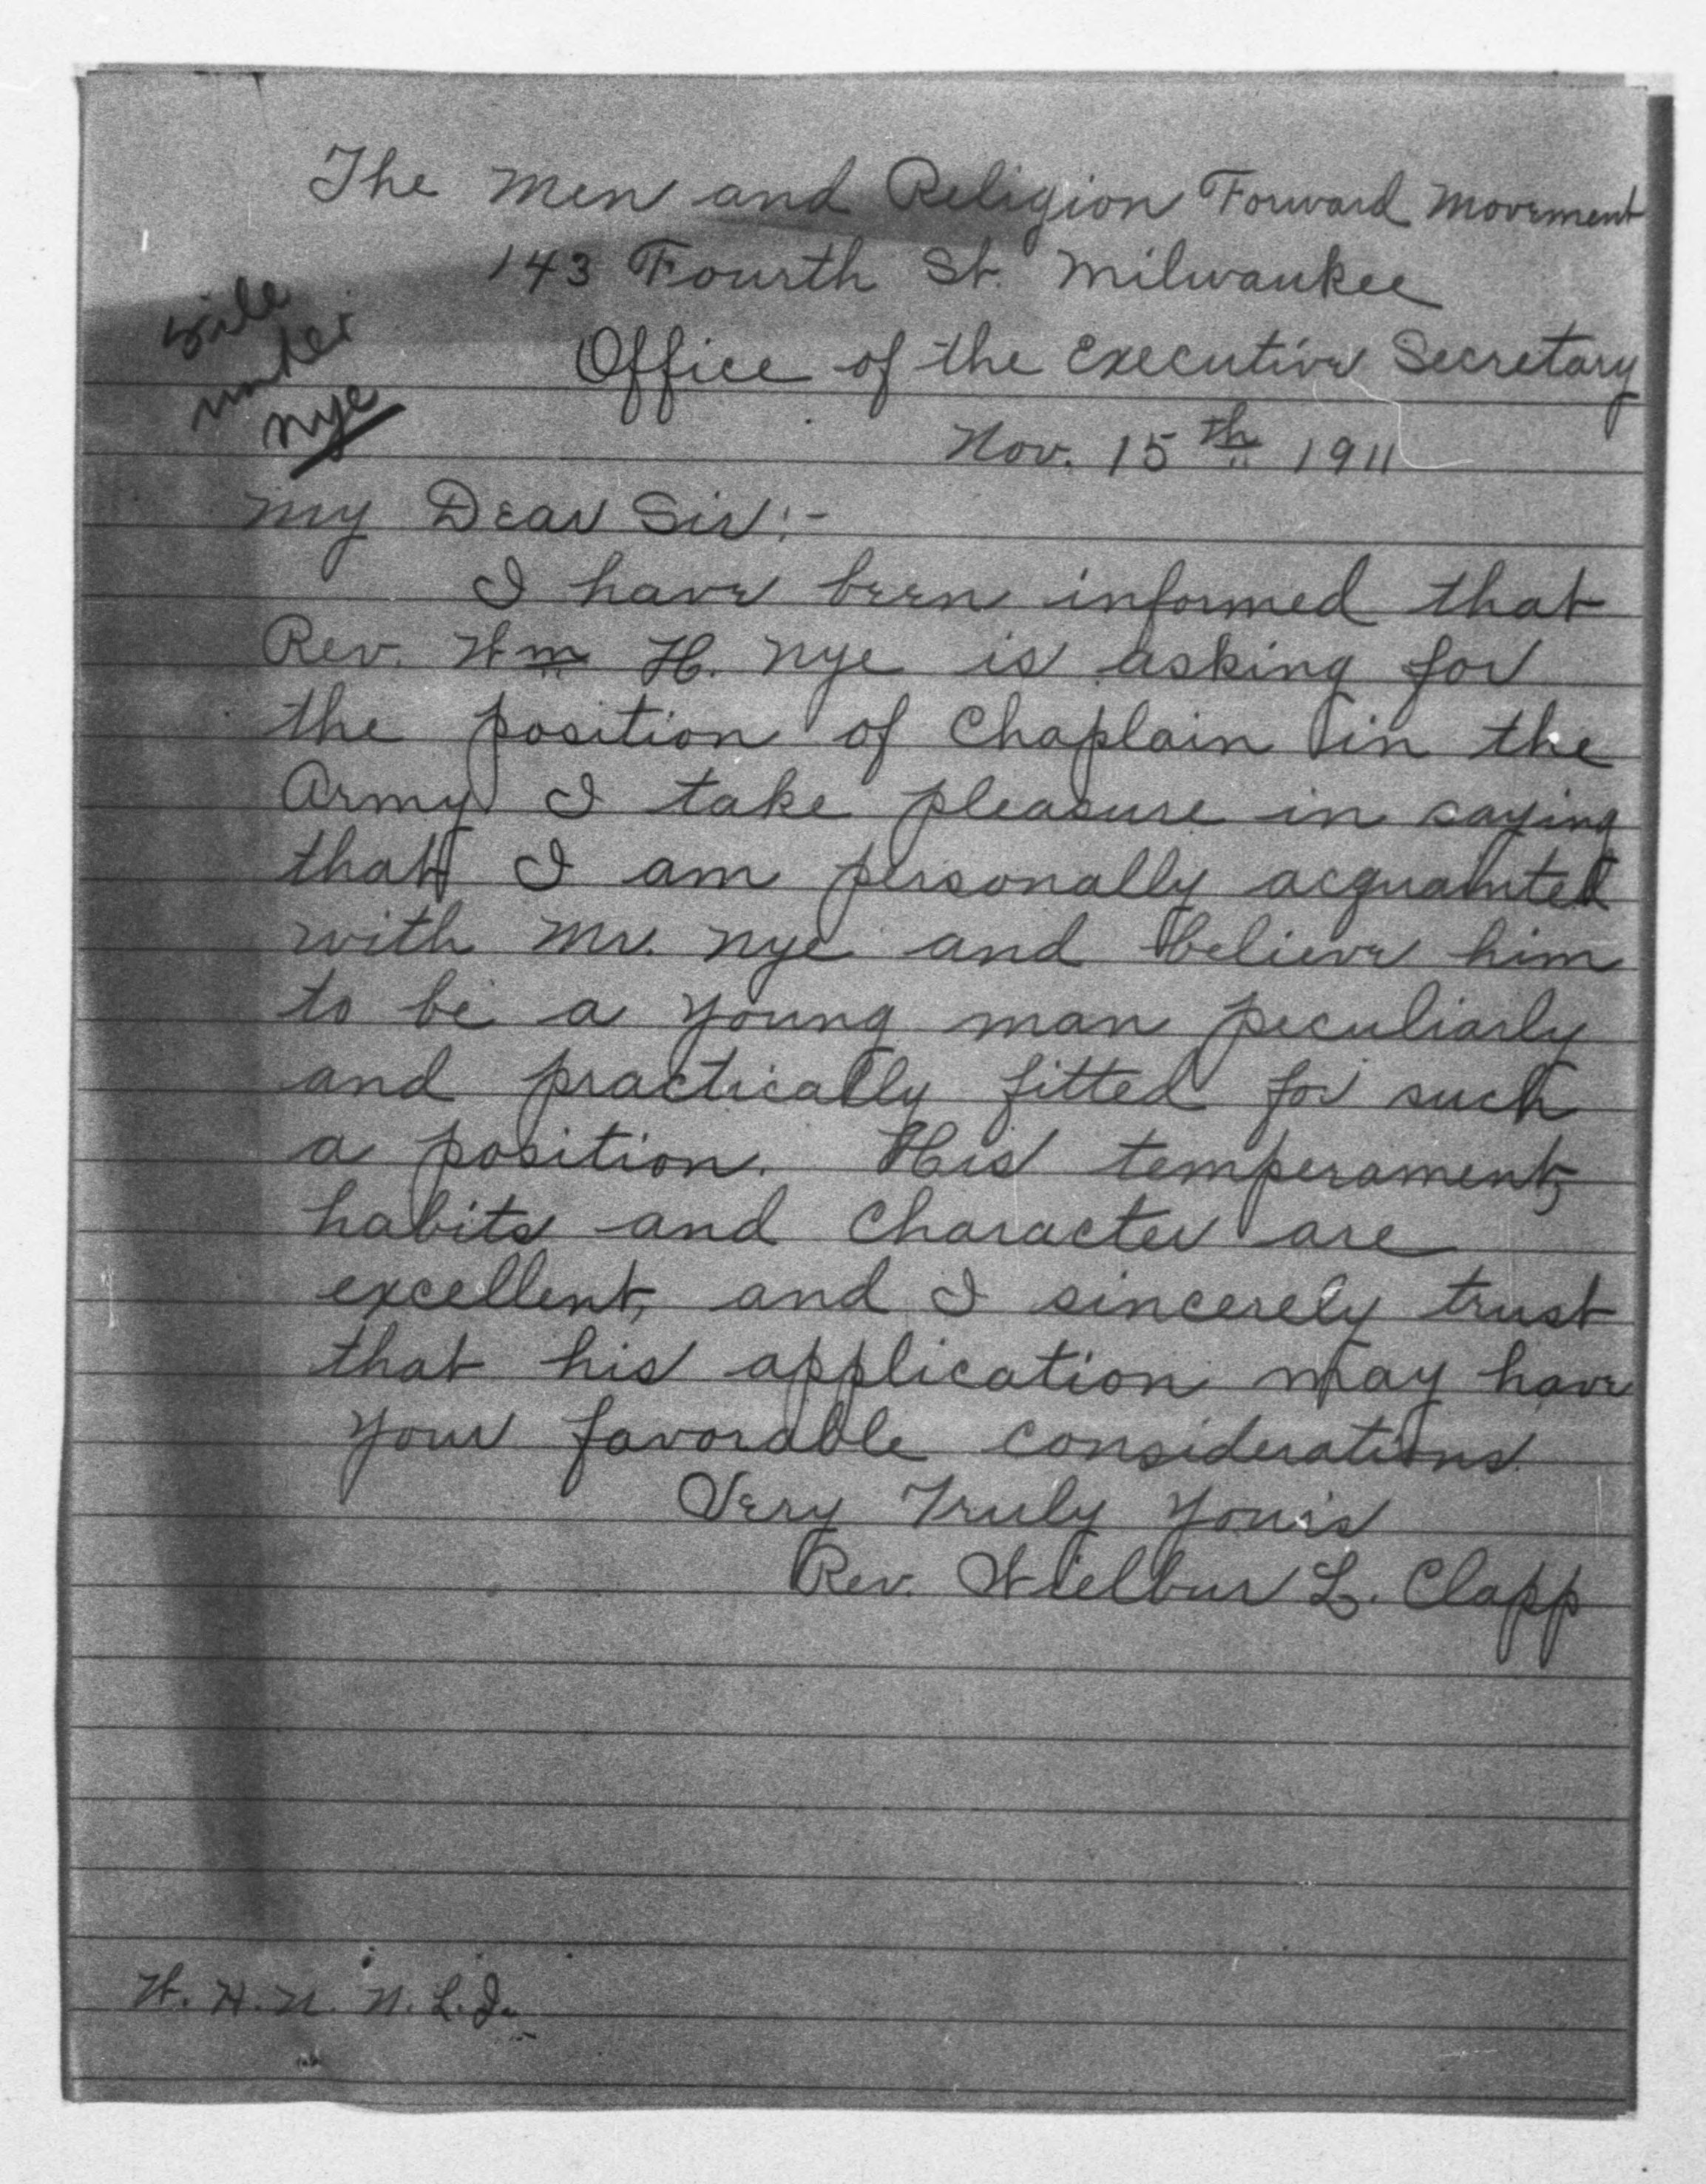 The Men and Religion Forward Movement
143 Fourth St. Milwaukee
file
under
Nye
Office of the Executive Secretary
Nov. 15th 1911
My Dear Sir:-
I have been informed that
Rev. Wm H. Nye is asking for
the position of Chaplain in the
Army I take pleasure in saying
that I am personally acquainted
with Mr. Nye and believe him
to be a young man peculiarly
and practically fitted for such
a position. His temperament,
habits and character are
excellent, and I sincerely trust
that his application may have
your favorable considerations.
Very Truly Yours
Rev. Wielbur L. Clapp
W. H. N.